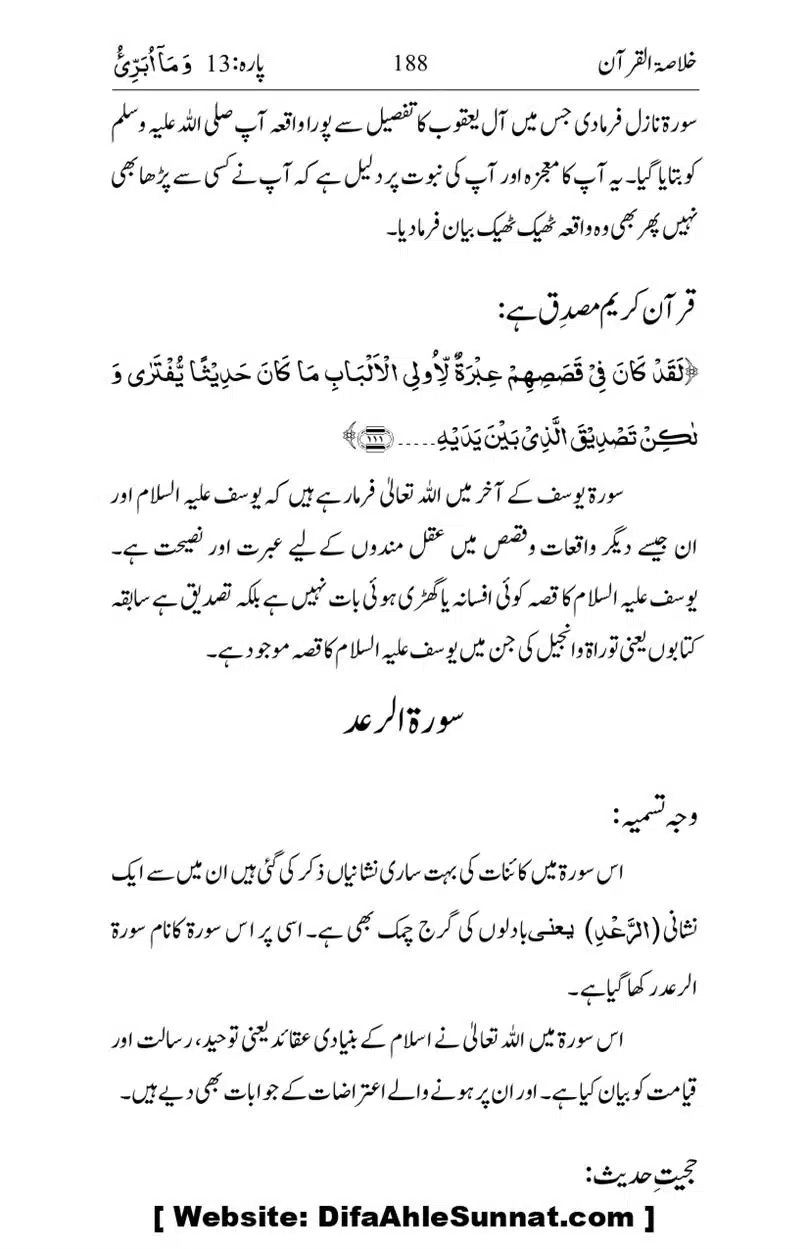 خلاصۃ القرآن 188 پارہ:13 وَ مَاۤ اُبَرِّئُ
سورۃ نازل فرمادی جس میں آل یعقوب کا تفصیل سے پورا واقعہ آپ صلی اللہ علیہ وسلم
کو بتایا گیا۔ یہ آپ کا معجزہ اور آپ کی نبوت پر دلیل ہے کہ آپ نے کسی سے پڑھا بھی
نہیں پھر بھی وہ واقعہ ٹھیک ٹھیک بیان فرما دیا۔
قرآن کریم مصدِق ہے:
﴿لَقَدْ كَانَ فِیْ قَصَصِهِمْ عِبْرَةٌ لِّاُولِی الْاَلْبَابِ مَا كَانَ حَدِیْثًا یُّفْتَرٰی وَ
لٰكِنْ تَصْدِیْقَ الَّذِیْ بَیْنَ یَدَیْهِ.....﴿۱۱۱﴾﴾
سورۃ یوسف کے آخر میں اللہ تعالیٰ فرمارہے ہیں کہ یوسف علیہ السلام اور
ان جیسے دیگر واقعات وقصص میں عقل مندوں کے لیے عبرت اور نصیحت ہے۔
یوسف علیہ السلام کا قصہ کوئی افسانہ یا گھڑی ہوئی بات نہیں ہے بلکہ تصدیق ہے سابقہ
کتابوں یعنی توراۃ وانجیل کی جن میں یوسف علیہ السلام کا قصہ موجود ہے۔
سورۃ الرعد
وجہ تسمیہ:
اس سورۃ میں کائنات کی بہت ساری نشانیاں ذکر کی گئی ہیں ان میں سے ایک
نشانی (الرَّعْدِ) یعنی بادلوں کی گرج چمک بھی ہے۔ اسی پر اس سورۃ کا نام سورۃ
الرعد رکھا گیا ہے۔
اس سورۃ میں اللہ تعالیٰ نے اسلام کے بنیادی عقائد یعنی توحید، رسالت اور
قیامت کو بیان کیا ہے۔ اور ان پر ہونے والے اعتراضات کے جوابات بھی دیے ہیں۔
حجیتِ حدیث:
[ Website: DifaAhleSunnat.com ]